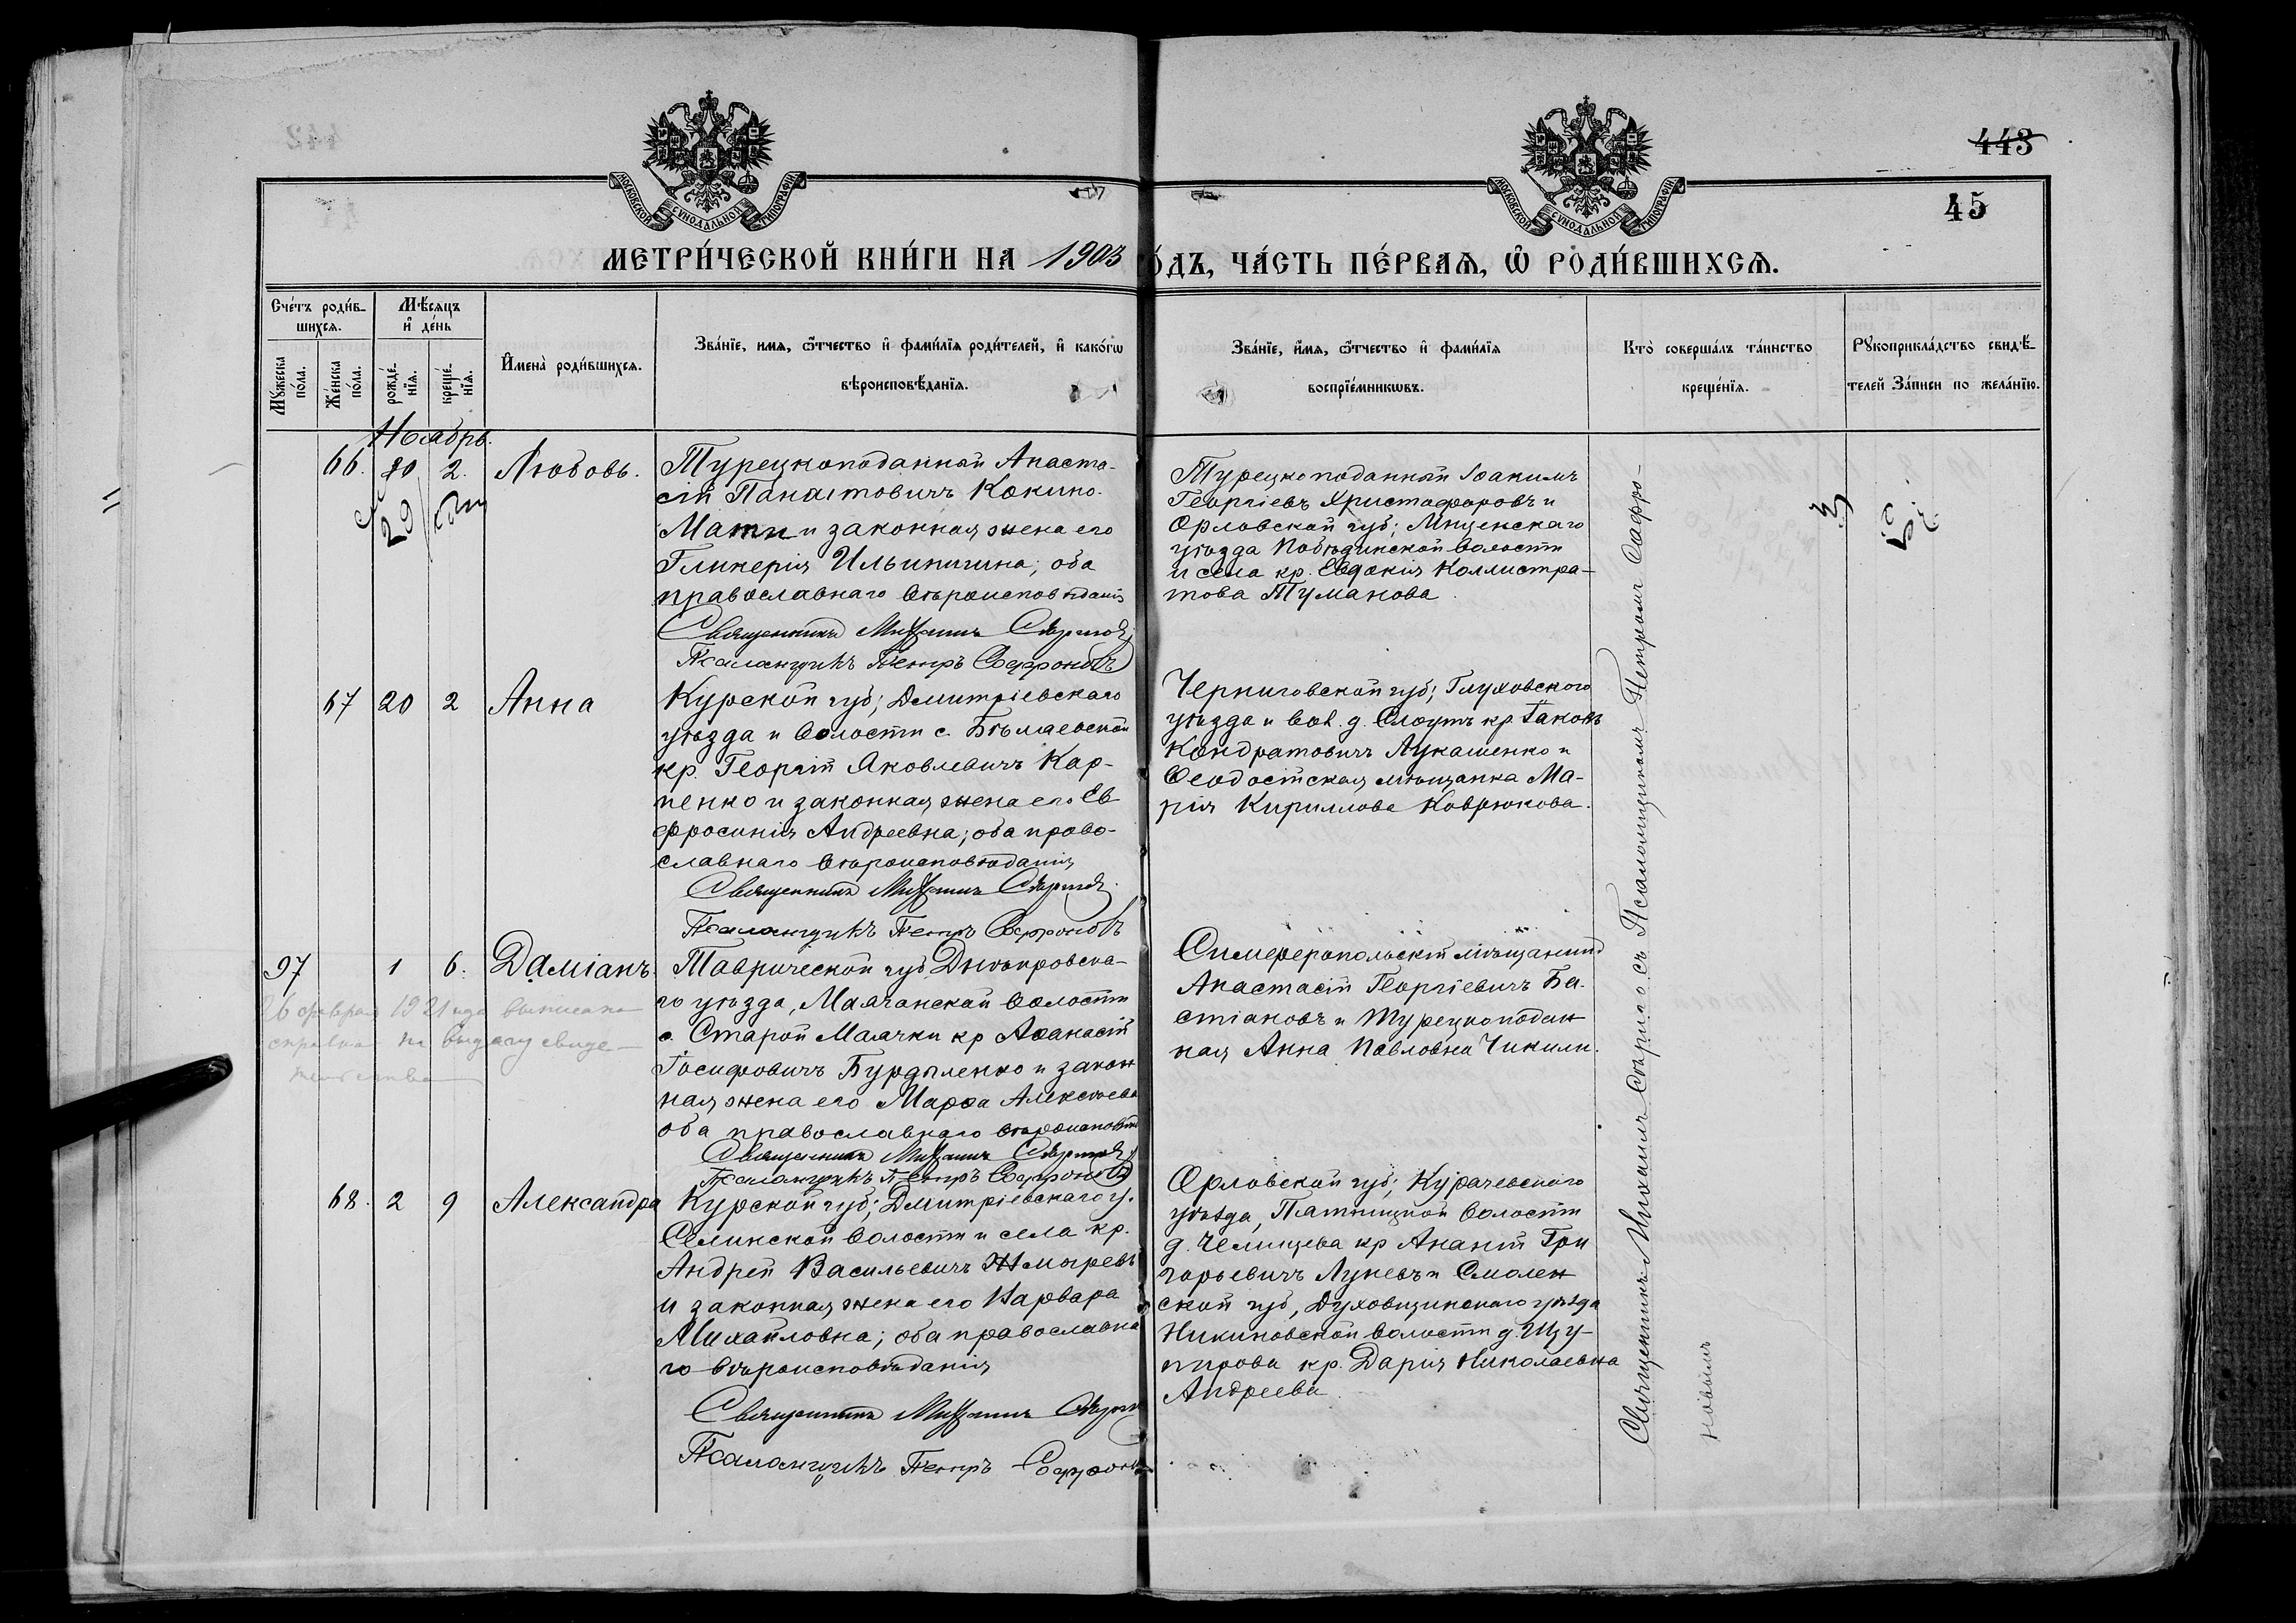 443
45
МОСКОВСКОЙ СУНОДАЛЬНОЙ ТИПОГРАФІИ
МОСКОВСКОЙ СУНОДАЛЬНОЙ ТИПОГРАФІИ
МЕТРИ́ЧЕСКОЙ КНИ́ГИ НА 1903 ГО́ДЪ, ЧА́СТЬ ПЕ́РВАѦ, Ѡ҆ РОДИ́ВШИХСѦ.
Сче́тъ роди́в-
шихсѧ.
Мꙋжеска по́ла.
Же́нска по́ла.
Мѣ́сѧцъ
и҆ де́нь
рожде́-
нїѧ.
креще́-
нїѧ.
И҆мена̀ роди́вшихсѧ.
Зва́нїе, имѧ, ѻ҆́тчество и҆ фами́лїѧ роди́телей, и҆ како́гѡ
вѣроисповѣ́данїѧ.
Зва́нїе, и҆́мѧ, ѻ҆́тчество и҆ фами́лїѧ
воспрїе́мникѡвъ.
Кто̀ соверша́лъ та́инство
креще́нїѧ.
Рꙋкоприкла́дство свидѣ́-
телей За́писи по жела́нїю.
Ноябрь.
66. 20 2. Любовь.
29
Турецкоподанный Анаста-
сій Панаiтовичъ Кокино-
Мати и законная жена его
Гликерія Ильинична; оба
православнаго вѣроисповѣданія
Священникъ Михаилъ
Псаломщикъ Петръ Сафроновъ
Турецкоподанный Іоакимъ
Георгіевъ Христофоровъ и
Орловской губ; Мценскаго
уѣзда волости
и села кр. Евдокія Каллистра-
това Туманова.
67 20 2 Анна
Курской губ; Дмитріевскаго
уѣзда и волости с.
кр. Георгій Яковлевичъ Кар-
пенко и законная жена его Ев
фросинія Андреевна; оба право-
славнаго вѣроисповѣданія
Священникъ Михаилъ
Псаломщикъ Петръ Сафроновъ
Черниговской губ; Глуховского
уѣзда и вол. д. Слоутъ кр. Іаковъ
Кондратовичъ Лукашенко и
Ѳеодосійская мѣщанка Ма-
рія Кириллова Коврюкова.
97 1 6. Даміанъ.
26 февраля 1921 года выписана
справка на выдачу свиде-
тельства
Таврической губ Днѣпровска-
го уѣзда, Маячанской волости
с. Старой Маячки кр Аѳанасій
Іосифовичъ Бурдыленко и закон
ная жена его Марѳа Алексѣева
оба православнаго вѣроисповѣд
Священникъ Михаилъ
Псаломщикъ Петръ Сафроновъ
Симферопольскій мѣщанинъ
Анастасій Георгіевичъ Ба-
стіановъ и турецкоподан
ная Анна Павловна Чикили.
68. 2 9 Александра
Курской губ; Дмитріевскаго у.
Селинской волости и села кр.
Андрей Васильевичъ
и законная жена его Варвара
Михайловна; оба православна
го вѣроисповѣданія
Священникъ Михаилъ
Псаломщикъ Петръ Сафронов
Орловской губ; Курачевскаго
уѣзда, Пятницкой волости
д. Челищева кр Ананій Гри
горьевичъ Луневъ и Смолен
ской губ, Духовщинскаго уѣзда
волости д.
кр. Дарія Николаевна
Андреева.
Священникъ Михаилъ съ Псаломщикомъ Петромъ Сафро-
новымъ